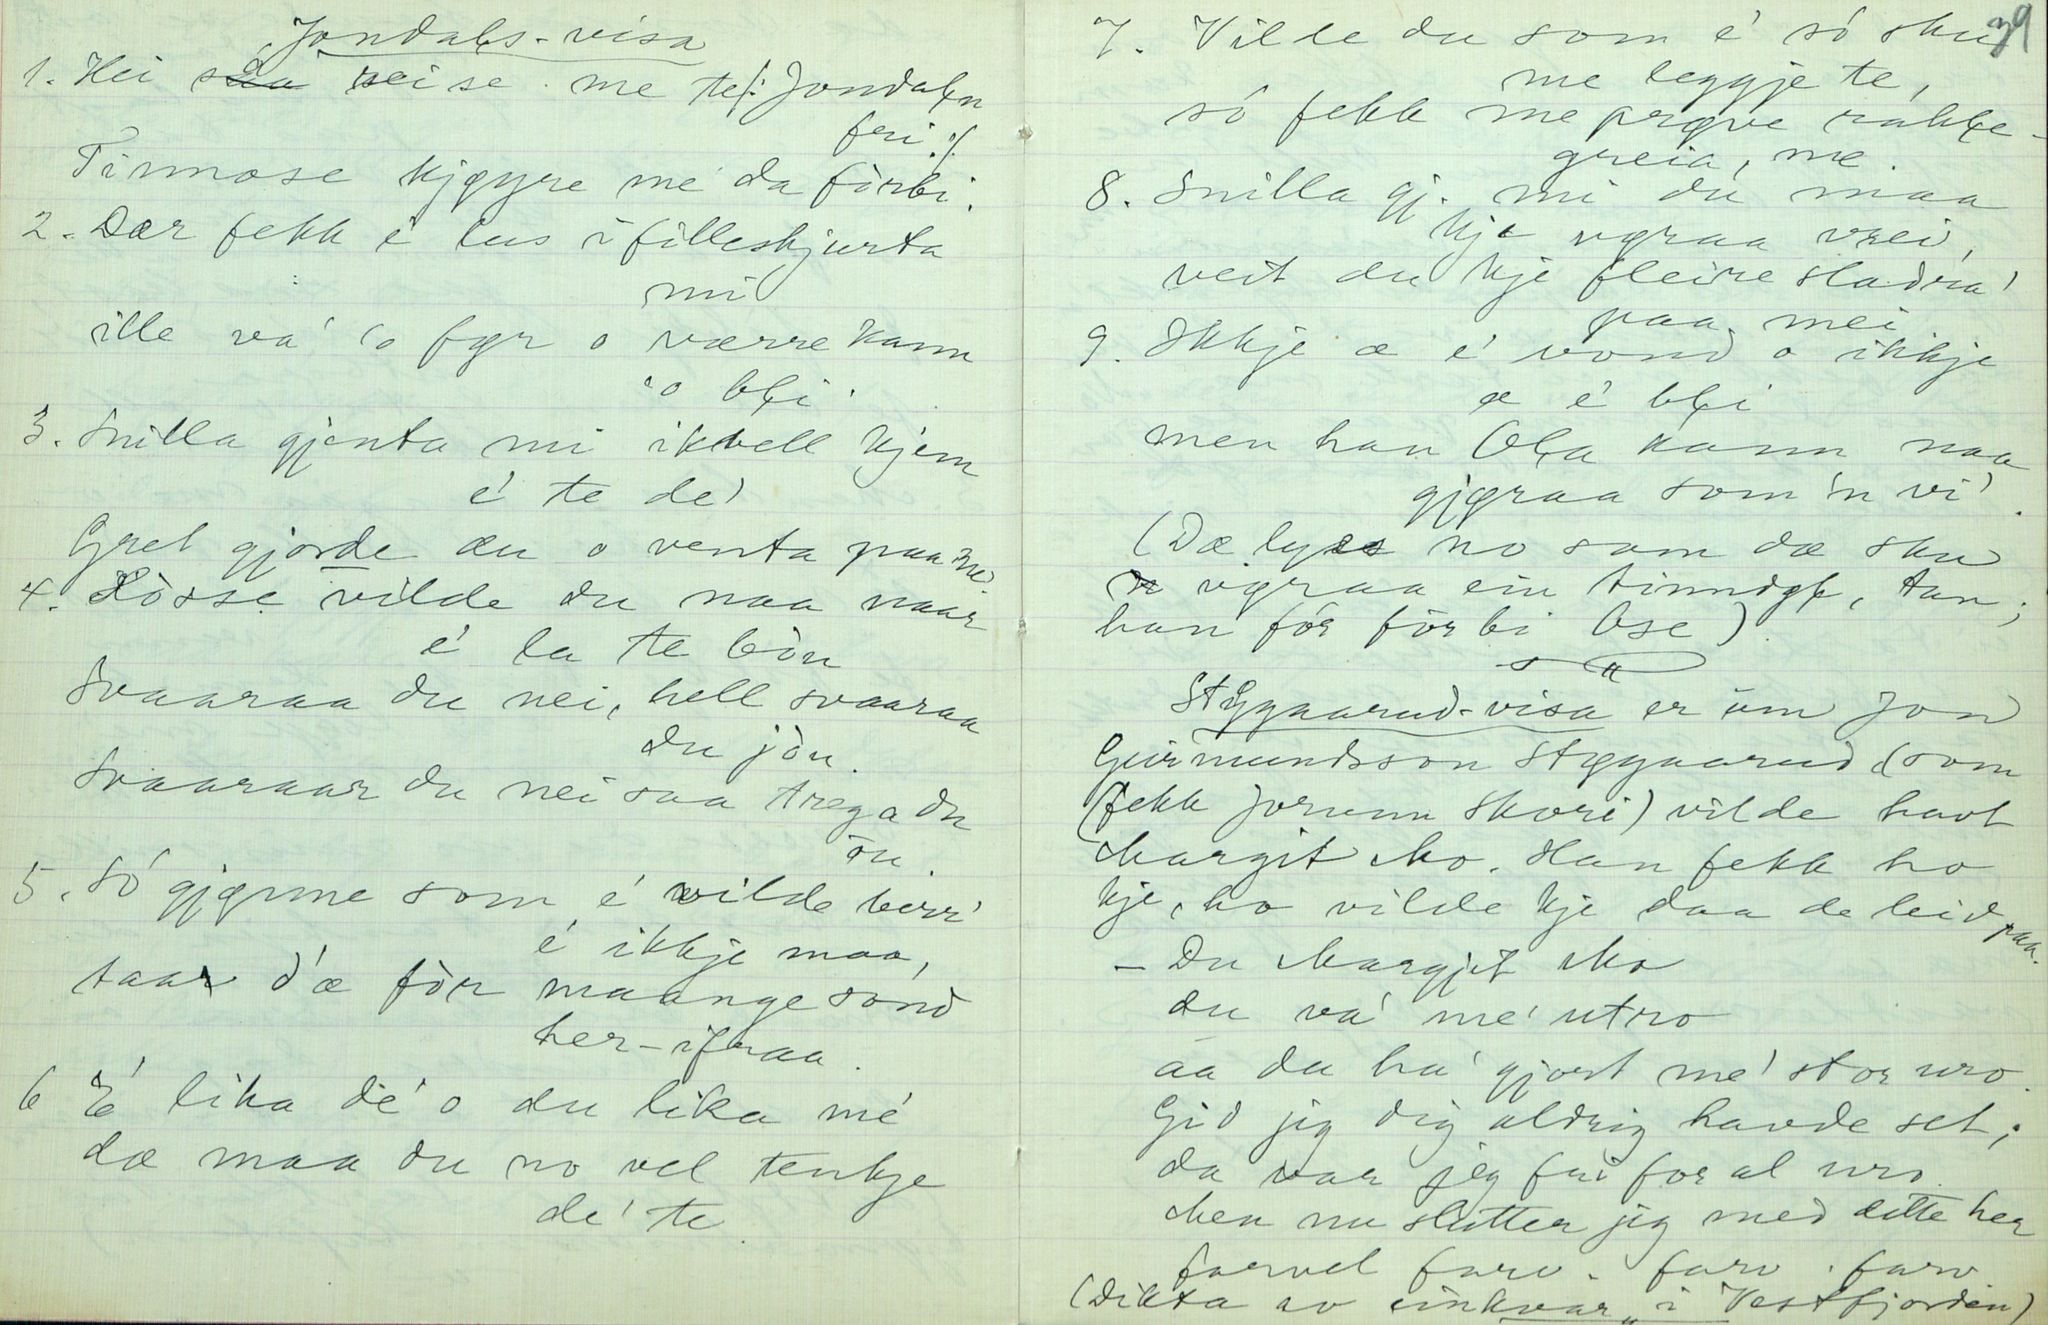 Jondals-visa
1. Hei såå reise me te /: Jondaln
fri :/
Tinnose kjøyre me da fòrbi.
2. Dær fekk é lus i filleskjurta
mi
ille va' 'o før o værre kann
'o bli.
3. Snilla gjenta mi ikvell kjem
é te de'
Gret gjorde du o venta paa me'
4. Hòsse vilde du naa naar
é la te bòn
Svaaraa du nei, hell svaaraa
du jòn.
Svaaraar du nei saa trega du
òn
5. Só gjønne som é vilde berr'
é ikkje maa,
taar d'æ fòr maange sònd
her-ifraa.
6 É lika dé o du lika mé
dæ maa du no vel tenkje
de' te
39
7. Vilde du som é só sku
me leggje te,
só fekk me prøve rakke-
greia, me.
8. Snilla gj. mi du maa
kje vøraa vrei,
veit du kje fleire sladra'
paa mei
9. Ikkje æ é vond o ikkje
æ é bli
men han Ola kann naa
gjøraa som 'n vi'.
(Dæ lyes no som dæ sku
vøraa ein tinndøl, tan;
han fór fòrbi Ose)
Støgaarud-visa er um Jon
Geirmundsson Støgaarud (som
fekk Jorunn Skori) vilde havt
Margit Mo. Han fekk ho
kje, ho vilde kje daa de leid paa.
– Du Margjit Mo
du va' me' utro
aa du ha' gjort me' stor uro.
Gid jeg dig aldrig havde set;
da var jeg fri for al uro.
Men nu slutter jeg med dette her
farvel farv. farv. farv.
(Dikta av einkvar i Vestfjorden)